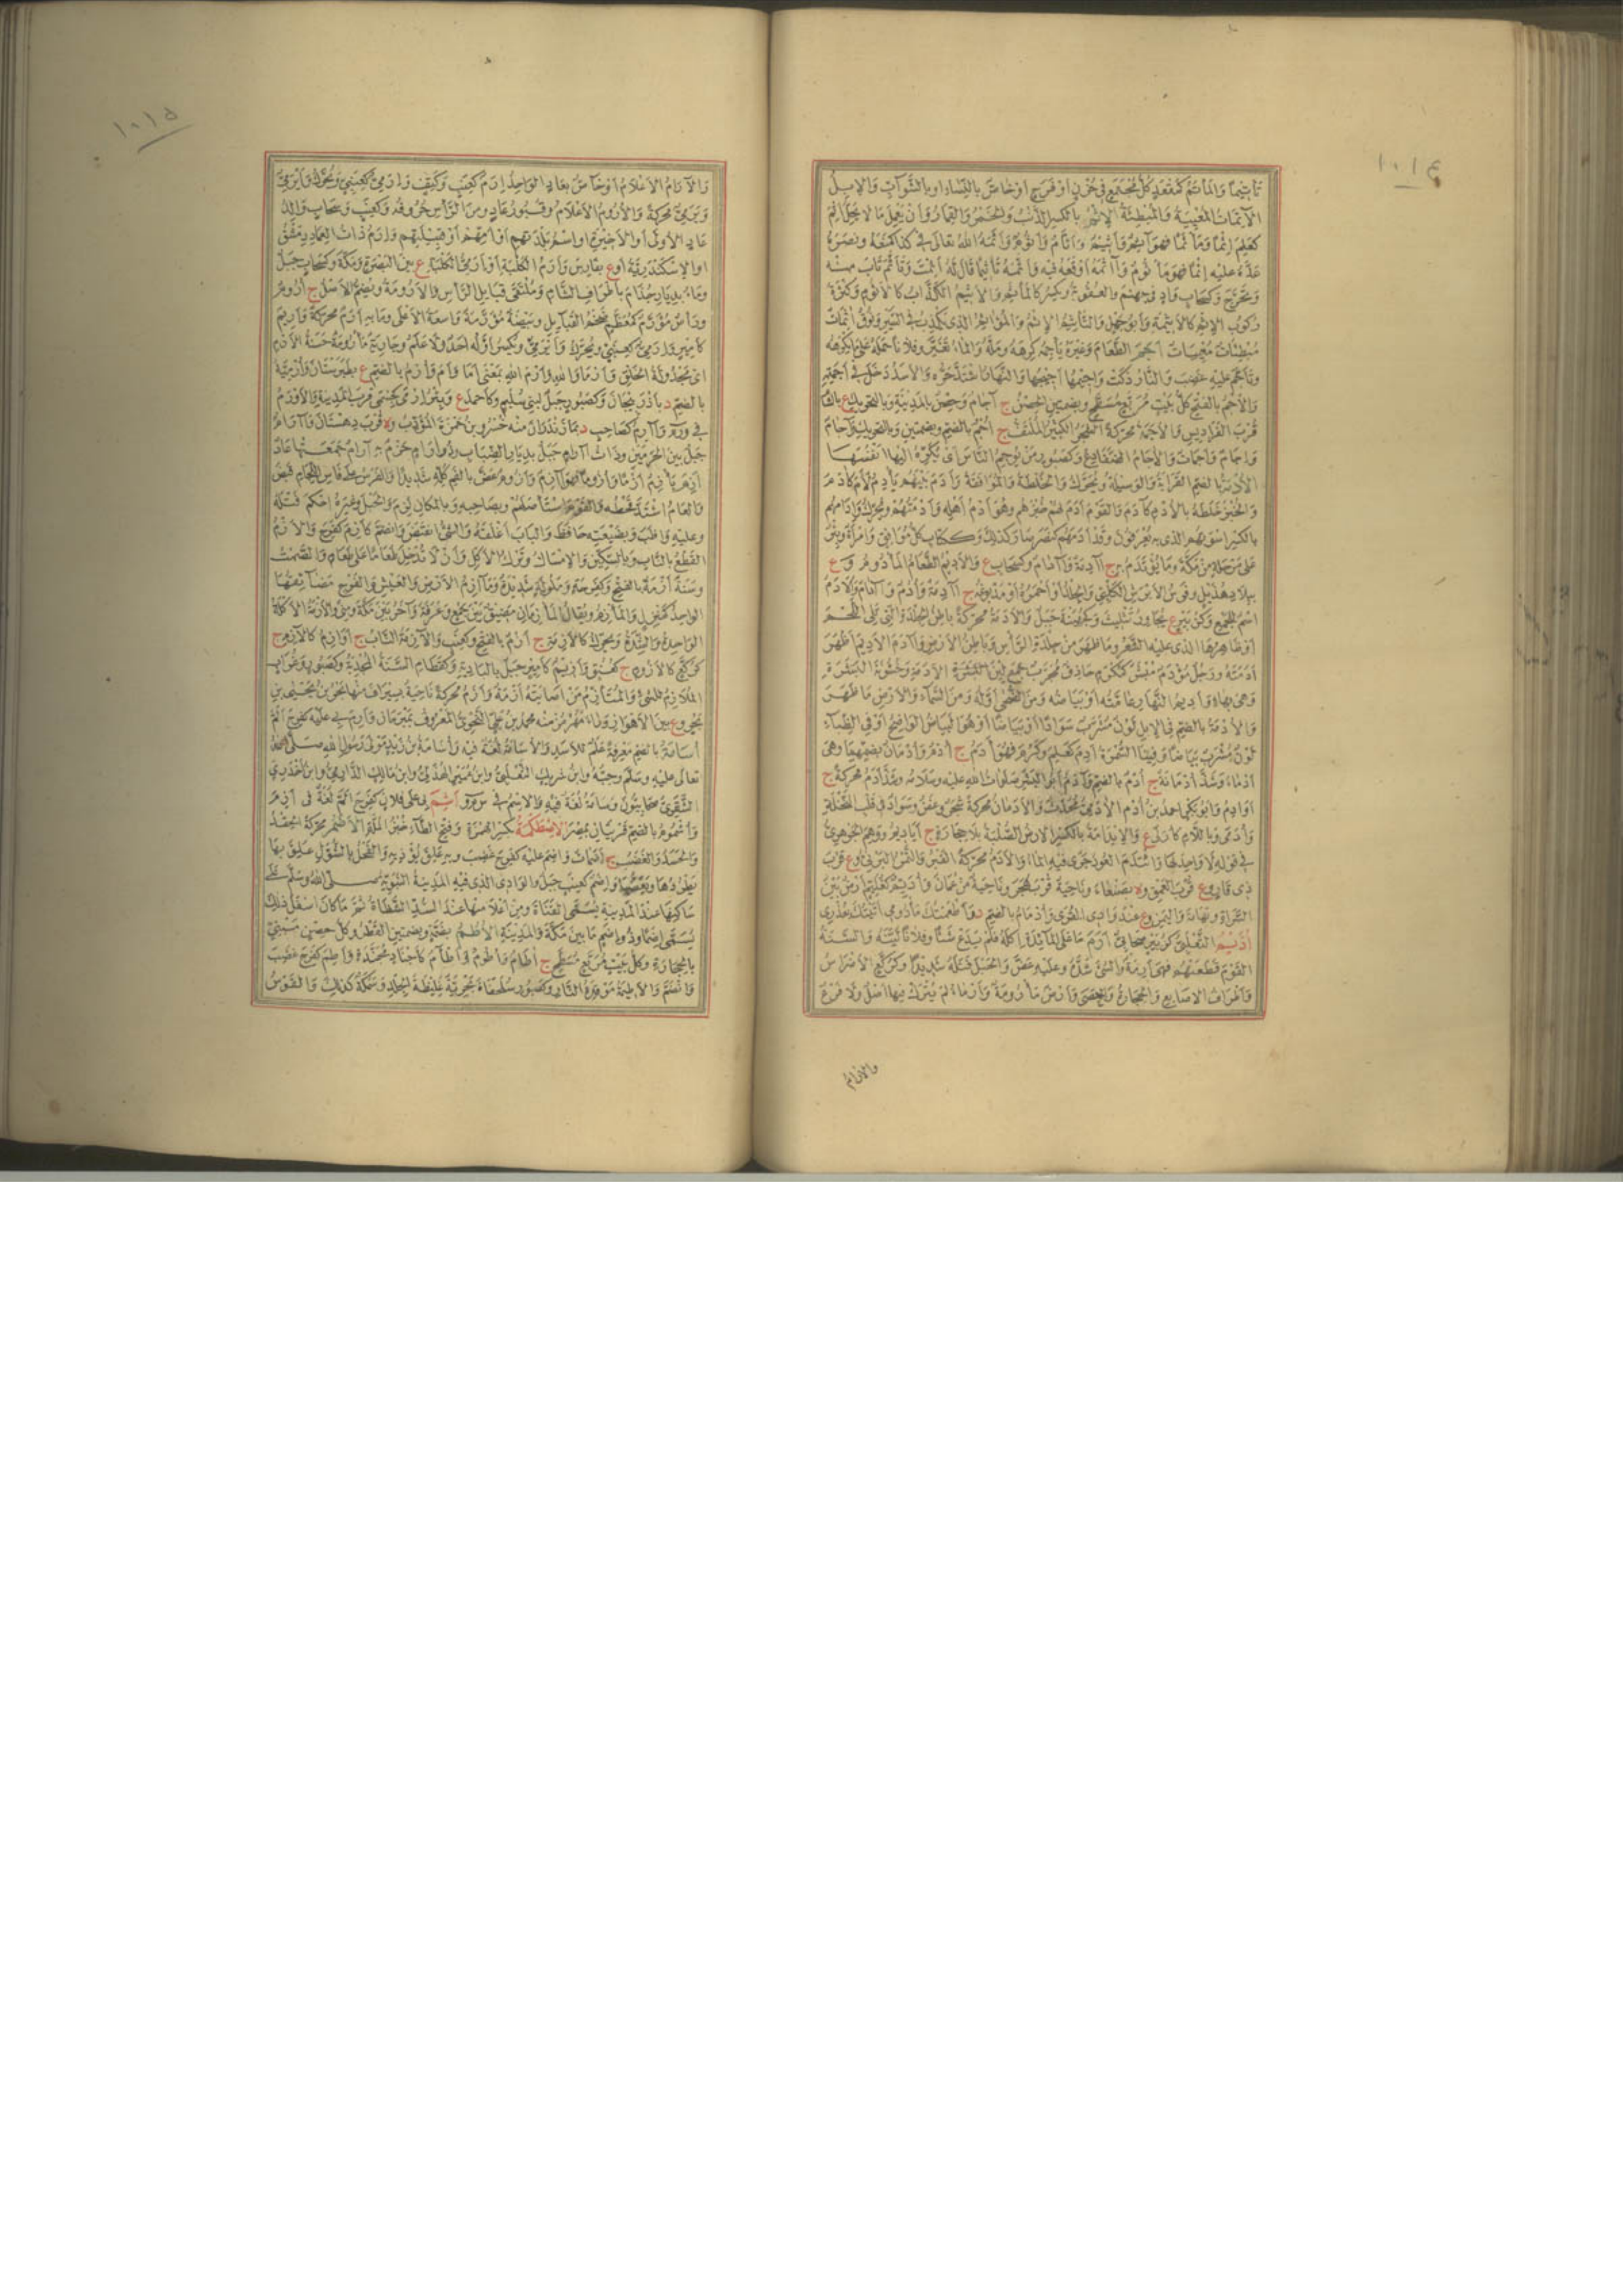 ١٠١٤
تأتيما والمأتم كمقعد كل مجتمع في حزن او فرح او خاص بالنساء او بالشواب والابل
الآتمات المعيية والمبطئة الإثم بالكسر الذنب والخمر والقمار وأن يعمل ما لا يحل أثم
كعلم إثما ومأثما فهو آثم وأثيم وأثام وأثوم وأثمه الله تعالى في كذا كمنعه ونصره
عده عليه إثما فهو مأثوم وآثمه أوقعه فيه وأثمه تأثيما قال له أثمت وتأثم تاب منه
وتحرج وكسحاب واد في جهنم والعقوبة ويكسر كالمأثم والاثيم الكذاب كالاثوم وكثرة
ركوب الإثم كالاثيمة وأبو جهل والتأثيم الإثم والمؤاثم الذي يكذب في السير ونوق آثمات
مبطئات معييات أجم الطعام وغيره يأجمه كرهه ومله والماء تغير وفلانا حمله على ما يكرهه
وتأجم عليه غضب والنار ذكت وأجيمها أجيجها والنهار اشتد حره والاسد دخل في أجمته
والأجم بالفتح كل بيت مربع مسطح وبضمتين الحصن ج آجام وحصن بالمدينة وبالتحريك ع بالشام
قرب الفراديس والأجمة محركة الشجر الكثير الملتف ج أجم بالضم وبضمتين وبالتحريك وآجام
وإجام وأجمات والآجام الضفادع وكصبور من يوجم الناس أي يكره اليها أنفسها
الأدمة بالضم القرابة والوسيلة ويحرك والخلطة والموافقة وأدم بينهم يأدم لأم كآدم
والخبز خلطه بالأدم كآدم والقوم أدم لهم خبزهم وهو أدم أهله وأدمتهم ويحرك وإدامهم
بالكسر أسوتهم الذي به يعرفون وقد أدمهم كنصر صار كذلك وككتاب كل موافق وامرأة وبئر
على مرحلة من مكة وما يؤتدم به ج آدمة وآدام وكسحاب ع والأديم الطعام المأدوم و ع
ببلاد هذيل وفرس الأبرش الكلبي والجلد أو أحمره أو مدبوغه ج آدمة وأدم وآدام والأدم
اسم للجمع وكزبير ع يجاور تثليث وكجهينة جبل والأدمة محركة باطن الجلدة التي تلي اللحم
أو ظاهرها الذي عليه الشعر وما ظهر من جلدة الرأس وباطن الأرض وآدم الأديم أظهر
أدمته ورجل مؤدم مبشر كمكرم حاذق مجرب جمع لين الأدمة وخشونة البشرة
وهي بهاء وأديم النهار عامته أو بياضه ومن الضحى أوله ومن السماء والأرض ما ظهر
والأدمة بالضم في الابل لون مشرب سوادا أو بياضا أو هو البياض الواضح أو في الظباء
لون مشرب بياضا وفينا السمرة أدم كعلم وكرم فهو آدم ج أدم وأدمان بضمهما وهي
أدماء وشذ أدمانة ج أدم بالضم وآدم أبو البشر صلوات الله عليه وسلامه وشذ أدم محركة ج
أوادم وأبو بكر أحمد بن آدم الأدمي محدث والأدمان محركة شجر وعفن وسواد في قلب النخلة
وأدمى وباللام كأربى ع والإيدامة بالكسر الارض الصلبة بلا حجارة ج أياديم ووهم الجوهري
في قوله لا واحد لها وائتدم العود جرى فيه الماء والأدم محركة القبر والتمر البرني و ع قرب
ذي قار و ع قرب العمق و ة بصنعاء وناحية قرب هجر وناحية من عمان وأديم كغليم أرض بين
السراة وتهامة واليمن و ع عند وادي القرى وأدمام بالضم د وأطعمتك مأدومي أتيتك بعذري
أذيم التغلبي كزبير صحابي أرم ما على المائدة أكله فلم يدع شيئا وفلانا لينه والسنة
القوم قطعتهم فهي أرمة والشئ شده وعليه عض والحبل فتله شديدا وكركع الاضراس
وأطراف الاصابع والحجارة والحصى وأرض مأرومة وأرماء لم يترك فيها أصل ولا فرع
والارام
١٠١٥
والآرام الاعلام أو خاص بعاد الواحد إرم كعنب وكتف وإرمي كعنبي ويحرك وأيرمي
ويرمي محركة والأروم الأعلام وقبور عاد ومن الرأس حروفه وكعنب وسحاب والد
عاد الأولى أو الأخيرة أو اسم بلدتهم أو أمهم أو قبيلتهم وإرم ذات العماد دمشق
أو الاسكندرية أو ع بفارس وإرم الكلبة أو أرمى الكلبة ع بين البصرة ومكة وكسحاب جبل
وماء بديار جذام بأطراف الشام وملتقى قبائل الرأس والأرومة وتضم الأصل ج أروم
ورأس مؤرم كمعظم ضخم القبائل وبيضة مؤرمة واسعة الأعلى وما به أرم محركة وأريم
كأمير وإرمي كعنبي ويحرك وأيرمي ويكسر أوله أحد ولا علم وجارية مأرومة حسنة الأرم
أي مجدولة الخلق وأرما والله وأرم الله بمعنى أما وأم وأرم بالضم ع بطبرستان وأرمية
بالضم د بأذربيجان وكصبور جبل لبني سليم وكأحمد ع وبئر إرمى كحسمى قرب المدينة والأورم
في ورم وآرم كصاحب د بمازندران منه خسرو بن حمزة المؤدب و ة قرب دهستان وآرام
جبل بين الحرمين وذات آرام جبل بديار الضباب وذو آرام حزم به آرام جمعتها عاد
أزم يأزم أزما وأزوما فهو آزم وأزوم عض بالفم كله شديدا والفرس على فأس اللجام قبض
والعام اشتد قحطه والقوم استأصلهم وبصاحبه وبالمكان لزم والحبل وغيره أحكم فتله
وعليه واظب وبضيعته حافظ والباب أغلقه والشئ انقبض وانضم كأزم كفرح والأزم
القطع بالناب وبالسكين والامساك وترك الأكل وأن لا تدخل طعاما على طعام والصمت
وسنة أزمة بالفتح وكفرحة وملولة شديدة ومآزم الأرض والعيش والفرج مضايقها
الواحد كمنزل والمأزم ويقال المأزمان مضيق بين جمع وعرفة وآخر بين مكة ومنى والأزمة الأكلة
الواحدة والشدة ويحرك كالآزمة ج أزم بالفتح وكعنب والآزمة الناب ج أوازم كالآزم ج
كركع كالأزوم ج كعنق وأزيم كأمير جبل بالبادية وكقطام السنة المجدبة وكصبور وغراب
الملازم للشئ والمتأزم من أصابته أزمة وأزم محركة ناحية بسيراف منها بحر بن يحيى بن
بحر و ع بين الأهواز ورامهرمز منه محمد بن علي النحوي المعروف بمبرمان وأزم بي عليه كفرح ألح
أسامة بالضم معرفة علم للأسد والأسامة لغة فيه وأسامة بن زيد مولى رسول الله صلى الله
تعالى عليه وسلم وحبه وابن شريك الثعلبي وابن عمير الهذلي وابن مالك الدارمي وابن أخدري
الشقري صحابيون وسامة لغة فيه والاسم في س م و أشم بي على فلان كفرح أثم لغة في أزم
وأشموم بالضم قريتان بمصر الإصطكمة بكسر الهمزة وفتح الطاء خبز الملة الأضم محركة الحقد
والحسد والغضب ج أضمات وأضم عليه كفرح غضب وبه علق يؤذيه والفحل بالشول علق بها
يطردها ويعضها وإضم كعنب جبل والوادي الذي فيه المدينة النبوية صلى الله وسلم على
ساكنها عند المدينة يسمى القناة ومن أعلا منها عند السد الشظاة ثم ما كان أسفل ذلك
يسمى إضما وذو إضم ما بين مكة والمدينة الأطم بضمة وبضمتين القصر وكل حصن مبني
بالحجارة وكل بيت مربع مسطح ج آطام وأطوم و آطام كأجناد مجندة وأطم كفرح غضب
وانضم والأطيمة موقدة النار وكصبور سلحفاة بحرية غليظة الجلد وسمكة كذلك والقوس